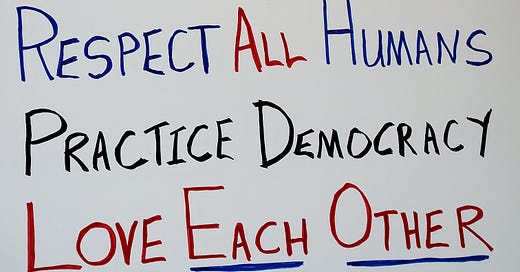 Respect All Humans
Practice Democracy
Love Each Other